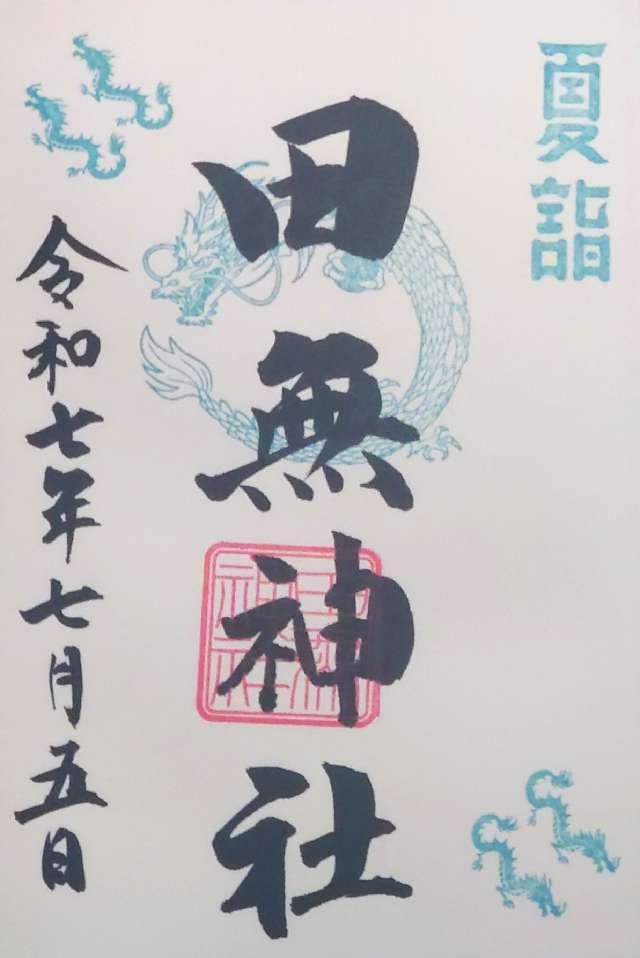 夏詣
田無神社
令和七年七月五日